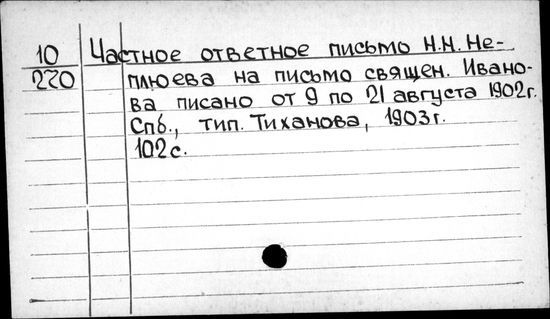 10
220
Частное ответное письмо Н.Н. Не-
плюева на письмо священ. Ивано-
ва писано от 9 по 21 августа 1902г.
Спб., тип. Тиханова, 1903г.
102с.